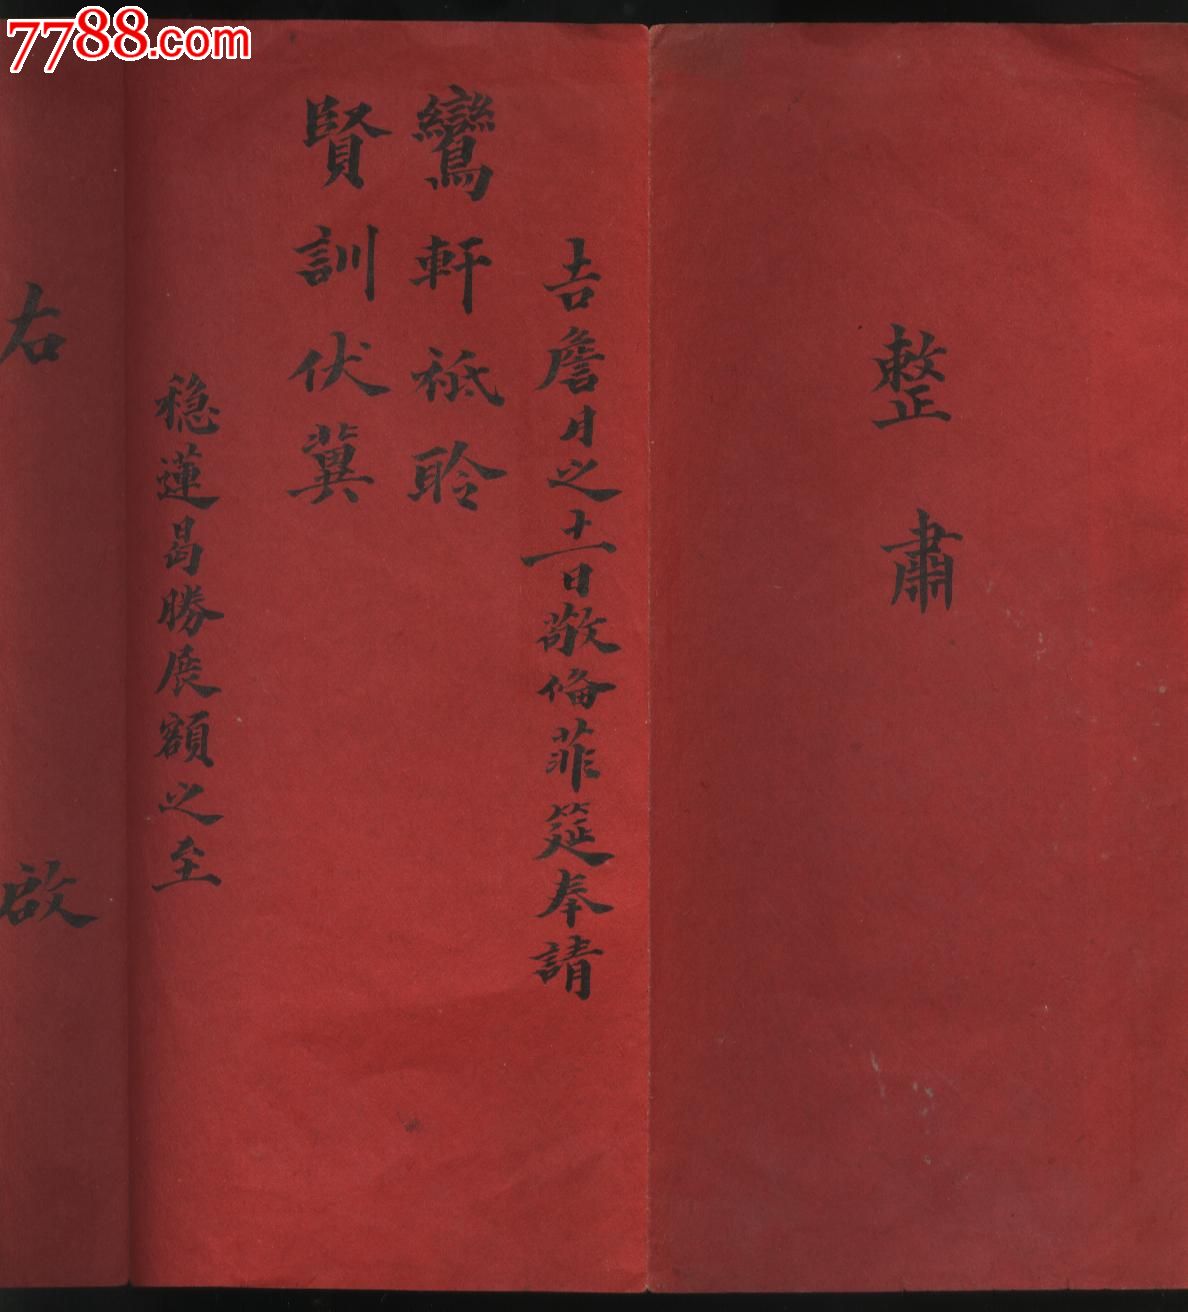 7788.com
整肅
吉詹月之十二日敬俻菲筵奉請
鸞軒祗聆
賢訓伏冀
稳蓮曷勝展額之至
右啟